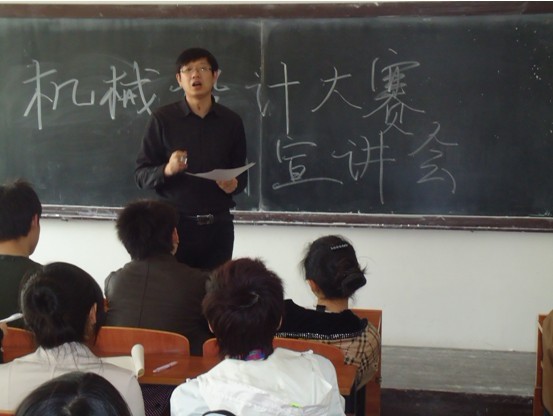 机械 计大赛
宣讲会